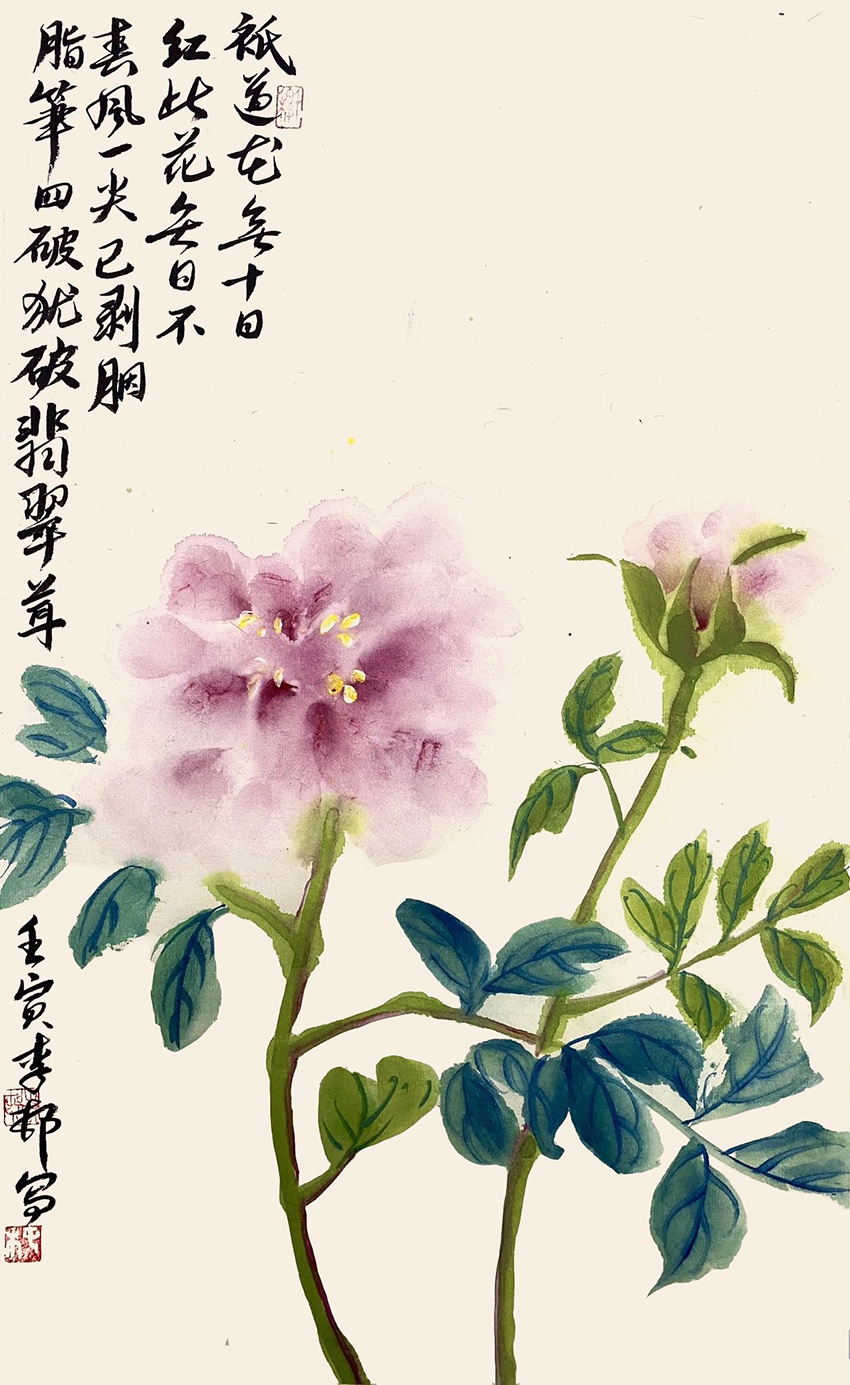 祇道花無十日
红此花無日不
春風一尖已剥胭
脂筆四破犹破翡翠茸
壬寅李邨写